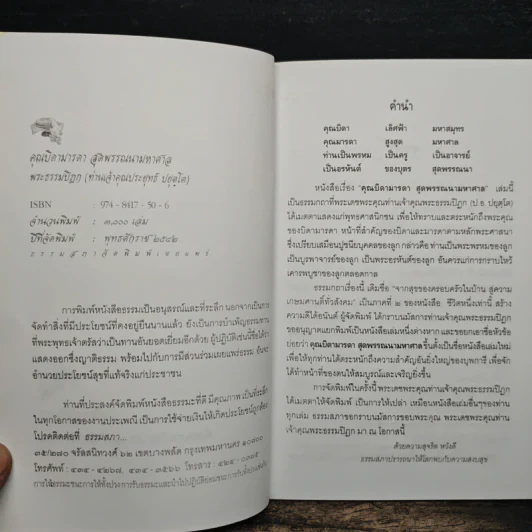 คุณบิดามารดา สุดพรรณนามหาศาล
พระธรรมปิฎก (ท่านเจ้าคุณประยุทธ์ ปยุตฺโต)
ISBN : 974 - 8417 - 50 - 6
จำนวนพิมพ์ : ๓,๐๐๐ เล่ม
ปีที่จัดพิมพ์ : พุทธศักราช ๒๕๔๒
ธรรมสภาจัดพิมพ์เผยแพร่
การพิมพ์หนังสือธรรมะเป็นอนุสรณ์และที่ระลึก นอกจากเป็นการ
จัดทำสิ่งที่มีประโยชน์ที่คงอยู่ยืนนานแล้ว ยังเป็นการบำเพ็ญธรรมทาน
ที่พระพุทธเจ้าตรัสว่าเป็นทานอันยอดเยี่ยมอีกด้วย ผู้ปฏิบัติเช่นนี้ชื่อว่าได้
แสดงออกซึ่งญาติธรรม พร้อมไปกับการมีส่วนร่วมเผยแพร่ธรรม อันจะ
อำนวยประโยชน์สุขที่แท้จริงแก่ประชาชน
ท่านที่ประสงค์จัดพิมพ์หนังสือธรรมะที่ดี มีคุณภาพ เป็นที่ระลึก
ในทุกโอกาสของงานประเพณี เป็นการใช้จ่ายเงินให้เกิดประโยชน์ถูกต้อง
โปรดติดต่อที่ ธรรมสภา...
๓๕/๒๗๐ จรัลสนิทวงศ์ ๖๒ เขตบางพลัด กรุงเทพมหานคร ๑๐๗๐๐
โทรศัพท์ : ๔๓๕ - ๔๒๖๗, ๔๓๔ - ๓๕๖๖ โทรสาร :
คำนำ
คุณบิดา เลิศฟ้า มหาสมุทร
คุณมารดา สูงสุด มหาศาล
ท่านเป็นพรหม เป็นครู เป็นอาจารย์
เป็นอรหันต์ ของบุตร สุดพรรณนา
หนังสือเรื่อง "คุณบิดามารดา สุดพรรณนามหาศาล" เล่มนี้
เป็นธรรมกถาที่พระเดชพระคุณท่านเจ้าคุณพระธรรมปิฎก (ป.อ. ปยุตฺโต)
ได้เมตตาแสดงแก่พุทธศาสนิกชน เพื่อให้ทราบและตระหนักถึงพระคุณ
ของบิดามารดา หน้าที่สำคัญของบิดาและมารดาตามหลักพระศาสนา
ซึ่งเปรียบเสมือนปูชนียบุคคลของลูก กล่าวคือ ท่านเป็นพระพรหมของลูก
เป็นบูรพาจารย์ของลูก เป็นพระอรหันต์ของลูก อันควรแก่การกราบไหว้
เคารพบูชาของลูกตลอดกาล
ธรรมกถาเรื่องนี้ เดิมชื่อ "จากสุขของครอบครัวในบ้าน สู่ความ
เกษมศานติ์ทั่วสังคม" เป็นภาคที่ ๒ ของหนังสือ ชีวิตหนึ่งเท่านี้ สร้าง
ความดีได้อนันต์ ผู้จัดพิมพ์ ได้กราบนมัสการท่านเจ้าคุณพระธรรมปิฎก
ขออนุญาตแยกพิมพ์เป็นหนังสือเล่มหนึ่งต่างหาก และขอยกเอาชื่อหัวข้อ
ย่อยว่า คุณบิดามารดา สุดพรรณนามหาศาลขึ้นตั้งเป็นชื่อหนังสือเล่มใหม่
เพื่อให้ทุกท่านได้ตระหนักถึงความสำคัญอันยิ่งใหญ่ของบุพการี เพื่อจัก
ได้ทำหน้าที่ของตนให้สมบูรณ์และเจริญยิ่งขึ้น
การจัดพิมพ์ในครั้งนี้ พระเดชพระคุณท่านเจ้าคุณพระธรรมปิฎก
ได้เมตตาให้จัดพิมพ์ เป็นการให้เปล่า เหมือนหนังสือเล่มอื่นๆของท่าน
ทุกเล่ม ธรรมสภาขอกราบนมัสการขอบพระคุณ พระเดชพระคุณท่าน
เจ้าคุณพระธรรมปิฎก มา ณ โอกาสนี้
ด้วยความสุจริต หวังดี
ธรรมสภาปรารถนาให้โลกพบกับความสงบสุข